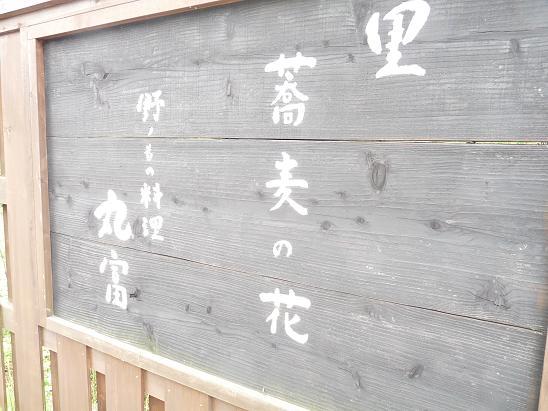 里
蕎麦の花
野人昔の料理
丸富